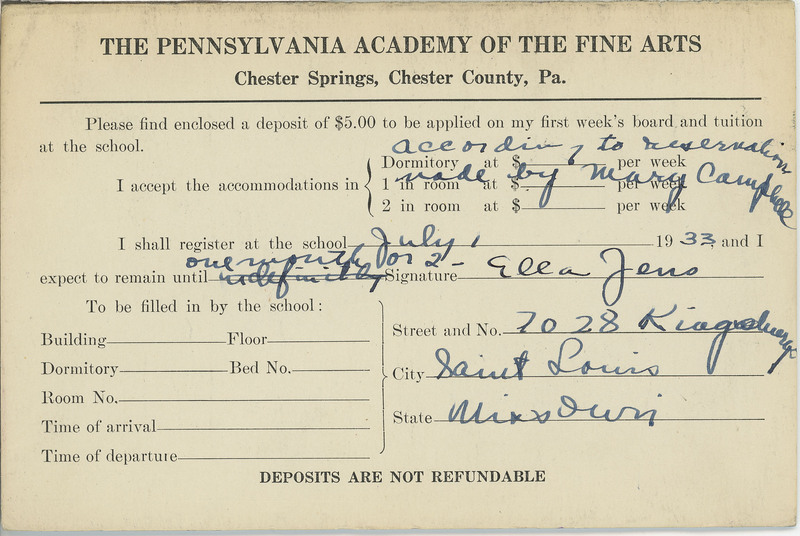 THE PENNSYLVANIA ACADEMY OF THE FINE ARTS
Chester Springs, Chester County, Pa.
Please find enclosed a deposit of $5.00 to be applied on my first week's board and tuition
at the school.
according to reservation
Dormitory at $ per week
made by Mary Campbell
I accept the accommodations in 1 in room at $ per week
2 in room at $ per week
I shall register at the school July 1 1933 and I
one month or 2 -
expect to remain until indefinitely Signature Ella Jens
To be filled in by the school:
Building Floor
Street and No. 7028
Dormitory Bed No.
City Saint Louis
Room No.
State Missouri
Time of arrival
Time of departure
DEPOSITS ARE NOT REFUNDABLE